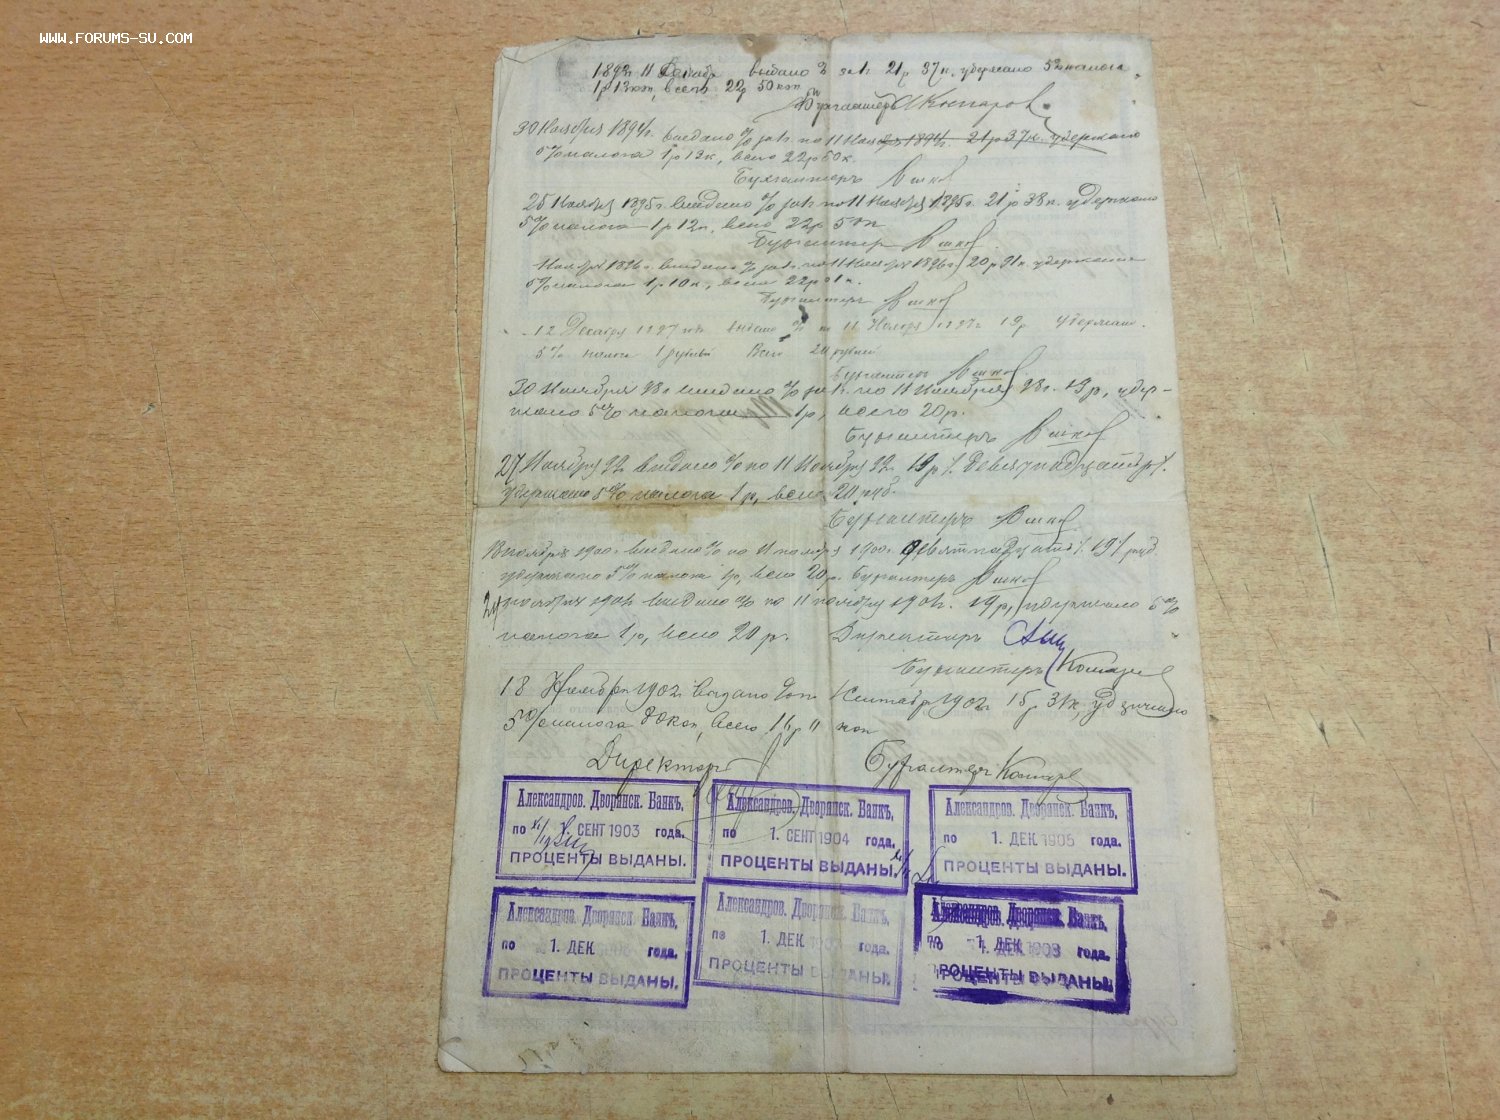 WWW.FORUMS-SU.COM
11 выдано % за 1 г. 21 р 37 к. удержано 5% налога
1 р 13 коп, всего 22 р 50 коп
Бухгалтеръ
30 Ноября 1894 г. выдано % за 1 г. по 11 Ноября 1894 г. 21 р 37 к. удержано
5% налога 1 р 13 к, всего 22 р 50 к.
Бухгалтеръ
25 Ноября 1895 г. выдано % за 1 г. по 11 Ноября 1895 г. 21 р 38 к. удержано
5% налога 1 р 12 к, всего 22 р 50 к
Бухгалтеръ
Ноября 1896 г. выдано % за 1 г. по 11 Ноября 1896 г. 20 р 91 к. удержано
5% налога 1 р 10 к, всего 22 р 01 к.
Бухгалтеръ
12 Декабря 1897 выдано % по 11 Ноября 1897 г 19 р удержано
5% налога 1 рубль Всего 20 рублей
Бухгалтеръ
30 Ноября 98 г. выдано % за 1 г. по 11 Ноября 98 г. 19 р, удер-
жано 5% налога 1 р, всего 20 р.
Бухгалтеръ
27 Ноября 99 выдано % по 11 Ноября 99 19 р /. Девятнадцать р /.
удержано 5% налога 1 р, всего 20 руб.
Бухгалтеръ
ноября 1900 г. выдано % по 11 ноября 1900 г. девятнадцать /. 19 /. руб
удержано 5% налога 1 р, всего 20 р. Бухгалтеръ
24 ноября 1901 г. выдано % по 11 ноября 1901 г. 19 р, удержано 5%
налога 1 р, всего 20 р. Директоръ
Бухгалтеръ
18 Ноября 1902 г. выдано % по Сентября 1902 г. 15 р 31 к, удержано
5% налога 80 коп, всего 16 р 11 коп
Директоръ Бухгалтеръ
Александров. Дворянск. Банкъ,
по 1. СЕНТ 1903 года.
ПРОЦЕНТЫ ВЫДАНЫ.
Александров. Дворянск. Банкъ,
по 1. СЕНТ 1904 года.
ПРОЦЕНТЫ ВЫДАНЫ.
Александров. Дворянск. Банкъ,
по 1. ДЕК 1905 года.
ПРОЦЕНТЫ ВЫДАНЫ.
Александров. Дворянск. Банкъ,
по 1. ДЕК года.
ПРОЦЕНТЫ ВЫДАНЫ.
Александров. Дворянск. Банкъ,
по 1. ДЕК 1907 года.
ПРОЦЕНТЫ ВЫДАНЫ.
Александров. Дворянск. Банкъ,
по 1. ДЕК года.
ПРОЦЕНТЫ ВЫДАНЫ.